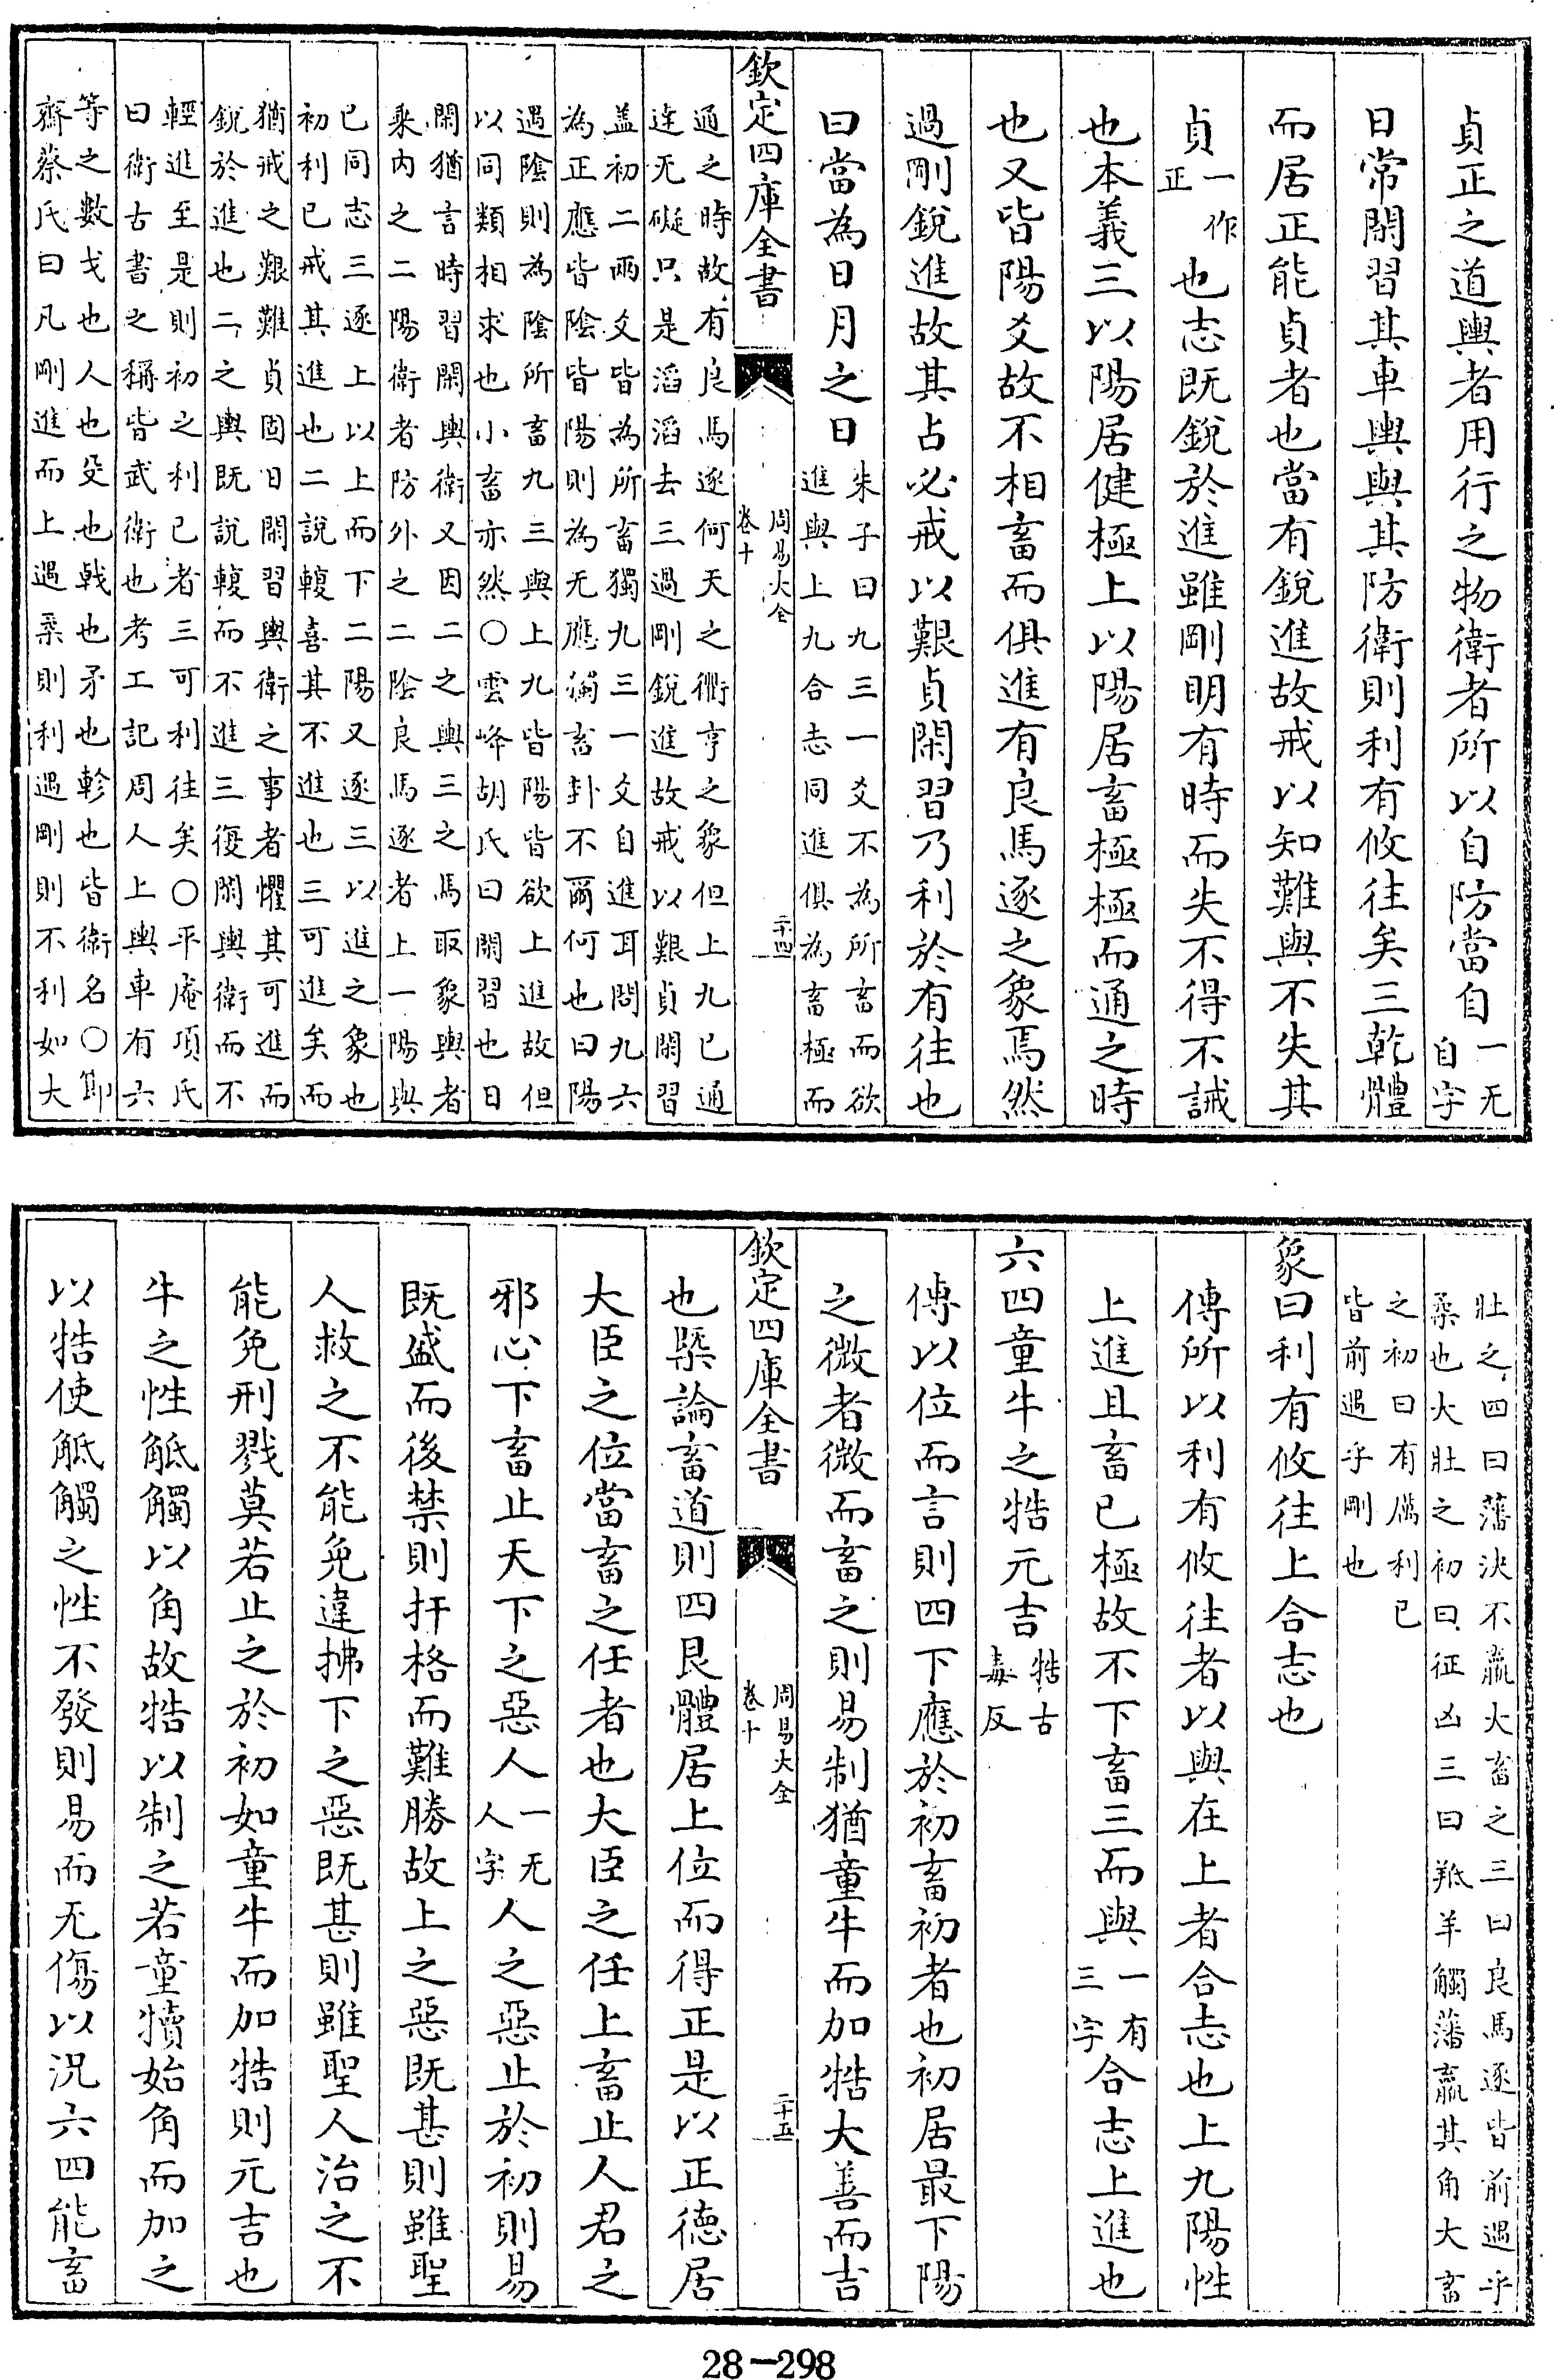 貞正之道輿者用行之物衛者所以自防當自一无自字
日常閑習其車輿與其防衛則利有攸往矣三乾體
而居正能貞者也當有銳進故戒以知難與不失其
貞一作正也志既銳於進雖剛明有時而失不得不誡
也本義三以陽居健極上以陽居畜極極而通之時
也又皆陽爻故不相畜而俱進有良馬逐之象焉然
過剛銳進故其占必戒以艱貞閑習乃利於有往也
曰當為日月之日
朱子曰九三一爻不為所畜而欲
進與上九合志同進俱為畜極而
欽定四庫全書
周易大全
卷十
二十四
通之時故有良馬逐何天之衢亨之象但上九已通
達无礙只是滔滔去三過剛銳進故戒以艱貞閑習
盖初二兩爻皆為所畜獨九三一爻自進耳問九六
為正應皆陰皆陽則為无應獨畜卦不爾何也曰陽
遇陰則為陰所畜九三與上九皆陽皆欲上進故但
以同類相求也小畜亦然○雲峰胡氏曰閑習也日
閑猶言時習閑輿衛又因二之輿三之馬取象輿者
乘内之二陽衛者防外之二陰良馬逐者上一陽與
已同志三逐上以上而下二陽又逐三以進之象也
初利已戒其進也二說輹喜其不進也三可進矣而
猶戒之艱難貞固日閑習輿衛之事者懼其可進而
銳於進也二之輿既說輹而不進三復閑輿衛而不
輕進至是則初之利已者三可利往矣○平庵項氏
曰衛古書之稱皆武衛也考工記周人上輿車有六
等之數戈也人也殳也戟也矛也軫也皆衛名○節
齋蔡氏曰凡剛進而上遇柔則利遇剛則不利如大
壯之四曰藩決不羸大畜之三曰良馬逐皆前遇乎
柔也大壯之初曰征凶三曰羝羊觸藩羸其角大畜
之初曰有厲利已
皆前遇乎剛也
象曰利有攸往上合志也
傳所以利有攸往者以與在上者合志也上九陽性
上進且畜已極故不下畜三而與一有三字合志上進也
六四童牛之牿元吉牿古毒反
傳以位而言則四下應於初畜初者也初居最下陽
之微者微而畜之則易制猶童牛而加牿大善而吉
欽定四庫全書
周易大全
卷十
二十五
也槩論畜道則四艮體居上位而得正是以正德居
大臣之位當畜之任者也大臣之任上畜止人君之
邪心下畜止天下之惡人一无人字人之惡止於初則易
既盛而後禁則扞格而難勝故上之惡既甚則雖聖
人救之不能免違拂下之惡既甚則雖聖人治之不
能免刑戮莫若止之於初如童牛而加牿則元吉也
牛之性觝觸以角故牿以制之若童犢始角而加之
以牿使觝觸之性不發則易而无傷以況六四能畜
28-298